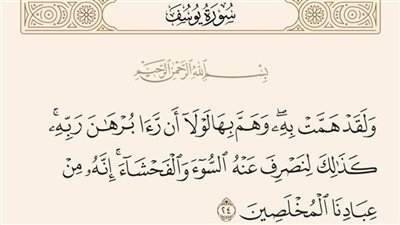 سُورَةُ يُوسُفَ
بِسْمِ اللَّهِ الرَّحْمَٰنِ الرَّحِيمِ
وَلَقَدْ هَمَّتْ بِهِۦ ۖ وَهَمَّ بِهَا لَوْلَآ أَن رَّءَا بُرْهَٰنَ رَبِّهِۦ ۚ
كَذَٰلِكَ لِنَصْرِفَ عَنْهُ ٱلسُّوٓءَ وَٱلْفَحْشَآءَ ۚ إِنَّهُۥ مِنْ
عِبَادِنَا ٱلْمُخْلَصِينَ ٢٤